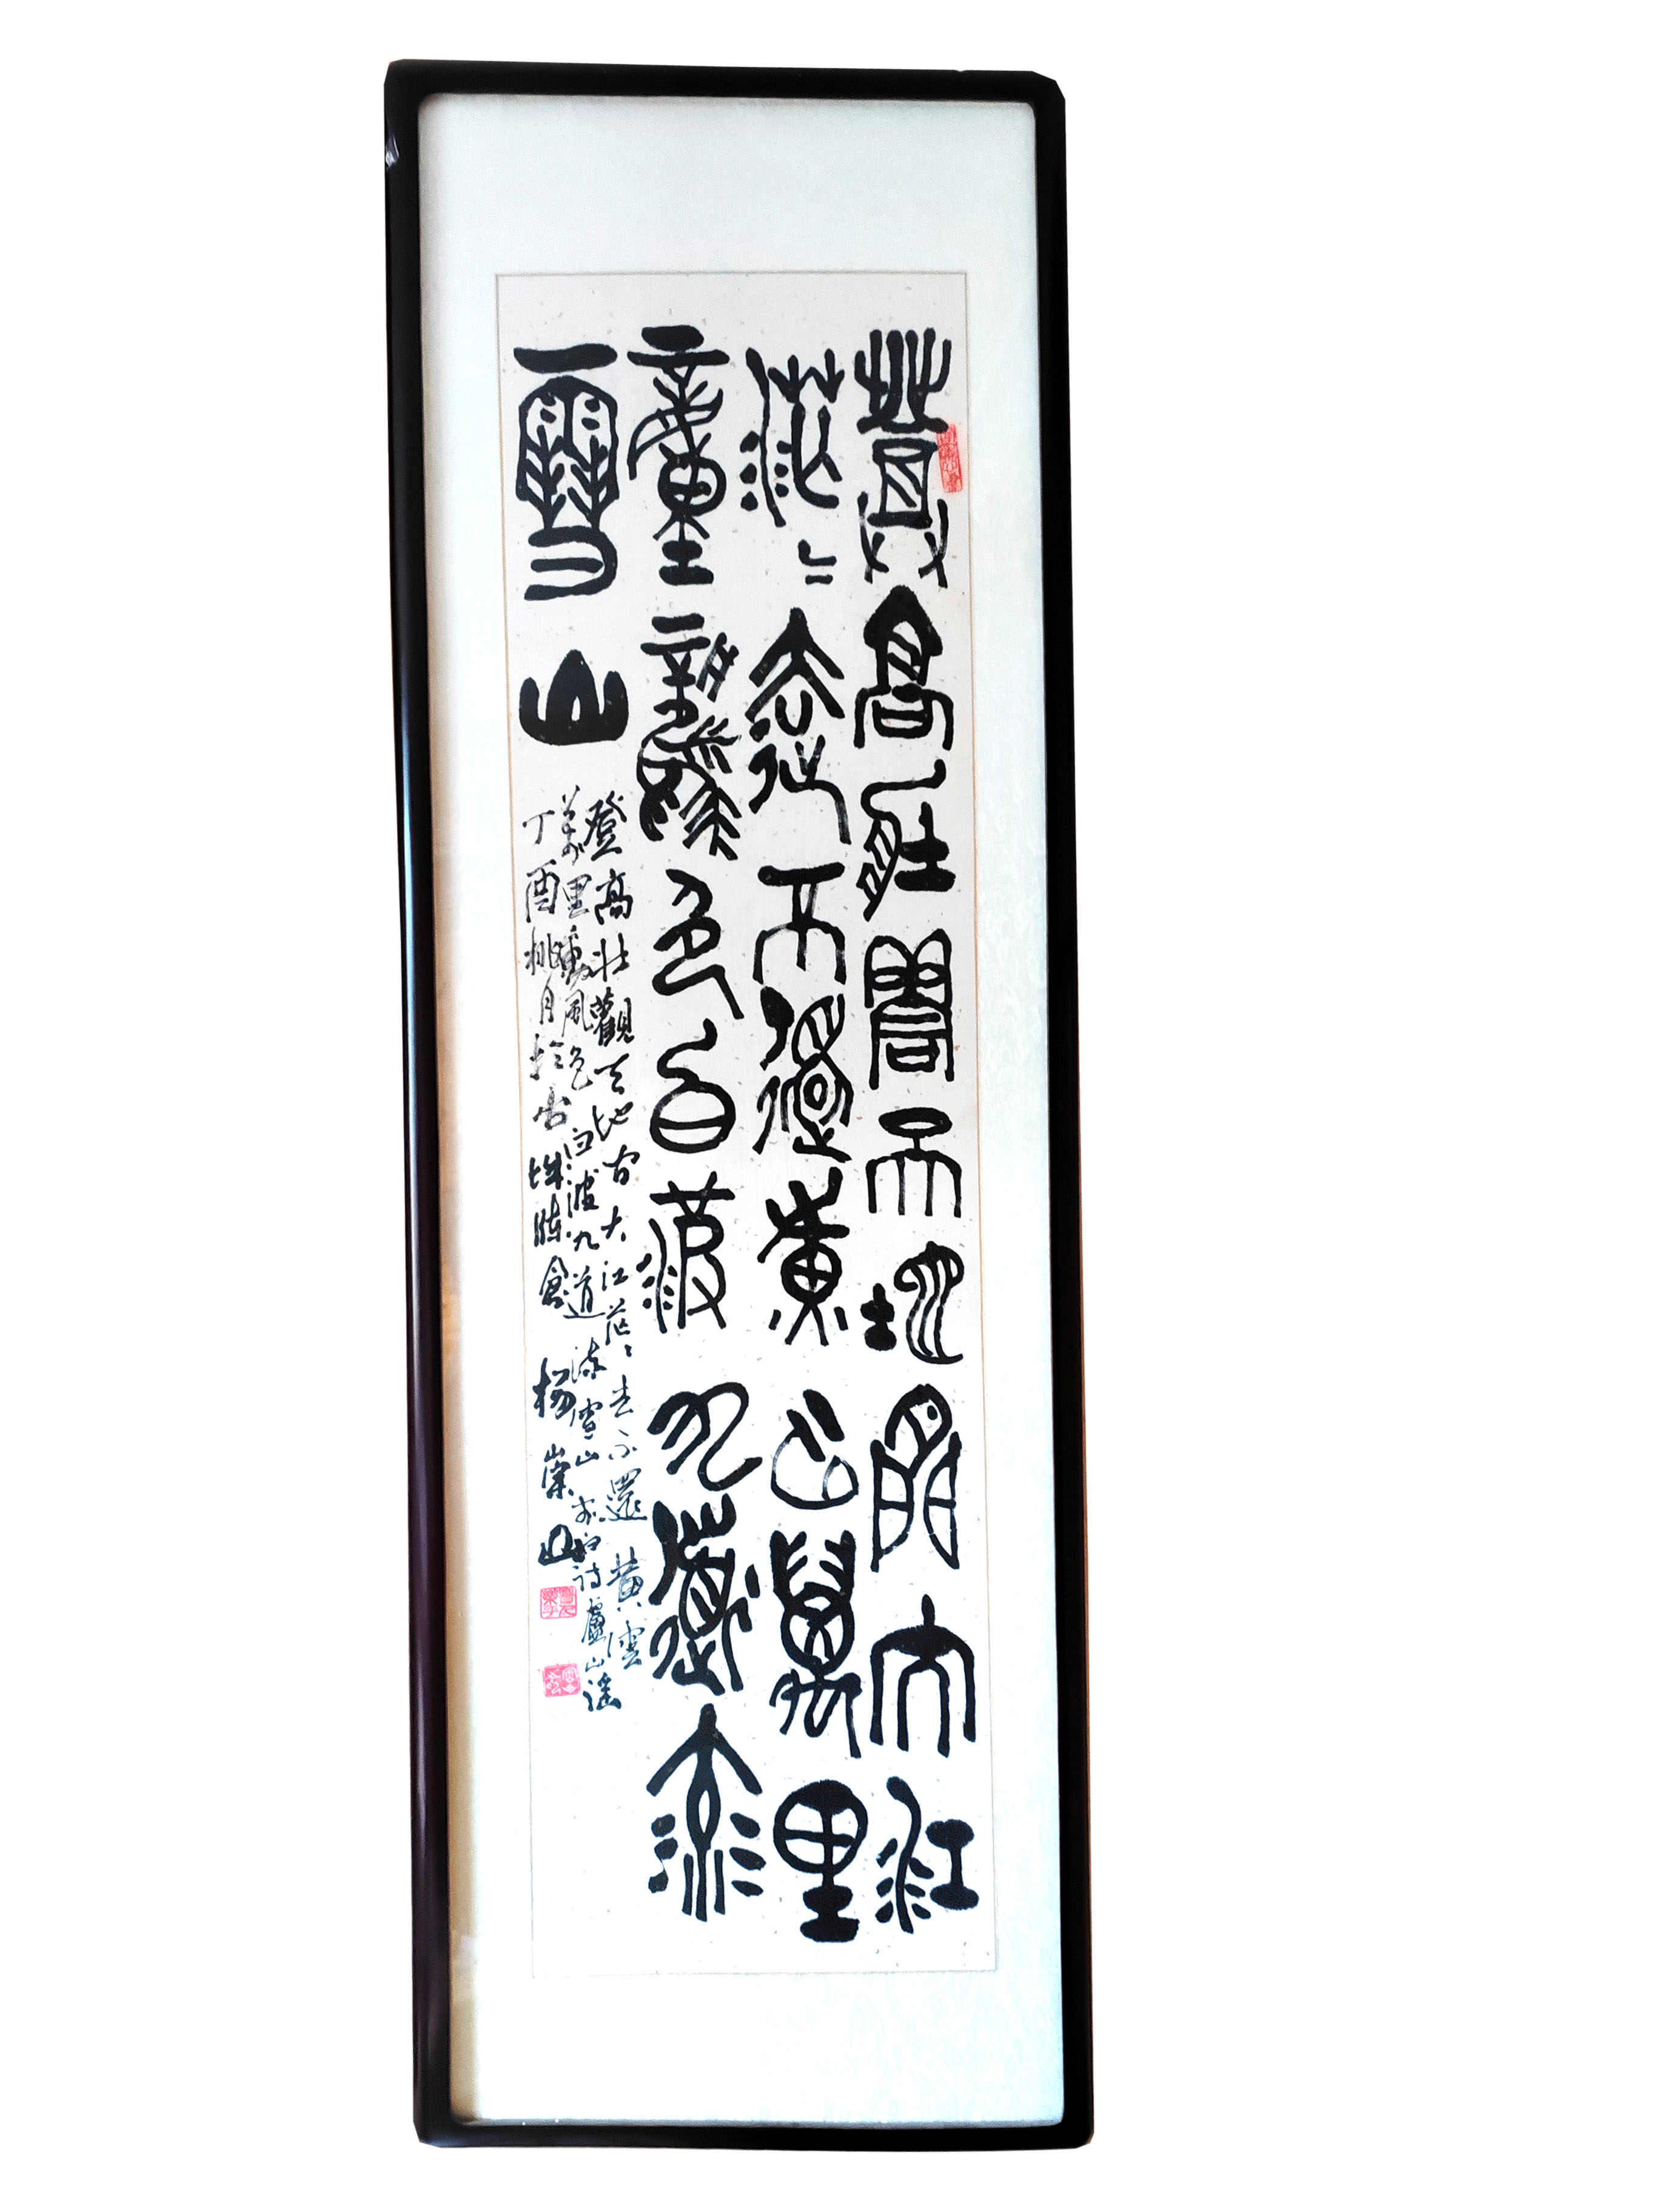 登高壯觀天地間大江
茫〻去不還黃雲萬里
動風色白波九道流
雪山
登高壯觀天地間大江茫〻去不還黃雲
萬里動風色白波九道流雪山李白詩廬山謠
丁酉桃月於陳倉楊崇山